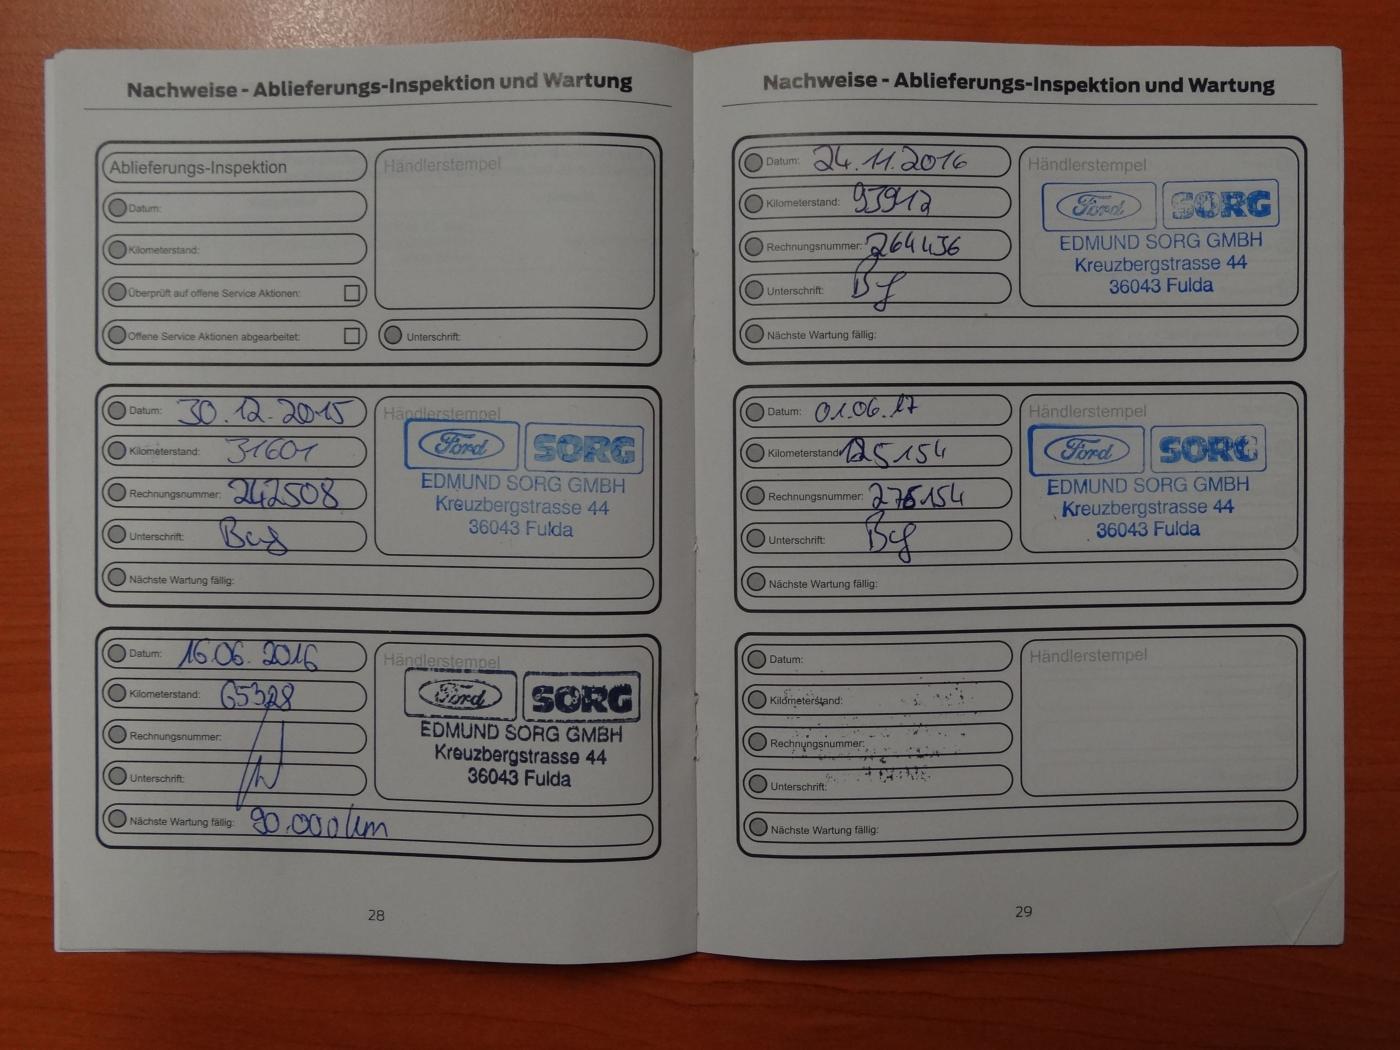 Nachweise - Ablieferungs-Inspektion und Wartung
Ablieferungs-Inspektion
Händlerstempel
Datum:
Kilometerstand:
Überprüft auf offene Service Aktionen:
Offene Service Aktionen abgearbeitet:
Unterschrift:
Datum: 30.12.2015
Kilometerstand: 31601
Rechnungsnummer: 242508
Unterschrift:
Nächste Wartung fällig:
Händlerstempel
Ford SORG
EDMUND SORG GMBH
Kreuzbergstrasse 44
36043 Fulda
Datum: 16.06.2016
Kilometerstand: 65328
Rechnungsnummer:
Unterschrift:
Nächste Wartung fällig: 90.000km
Händlerstempel
Ford SORG
EDMUND SORG GMBH
Kreuzbergstrasse 44
36043 Fulda
28
Nachweise - Ablieferungs-Inspektion und Wartung
Datum: 24.11.2016
Kilometerstand: 93912
Rechnungsnummer: 264436
Unterschrift:
Nächste Wartung fällig:
Händlerstempel
Ford SORG
EDMUND SORG GMBH
Kreuzbergstrasse 44
36043 Fulda
Datum: 01.06.17
Kilometerstand: 125154
Rechnungsnummer: 275154
Unterschrift:
Nächste Wartung fällig:
Händlerstempel
Ford SORG
EDMUND SORG GMBH
Kreuzbergstrasse 44
36043 Fulda
Datum:
Kilometerstand:
Rechnungsnummer:
Unterschrift:
Nächste Wartung fällig:
Händlerstempel
29